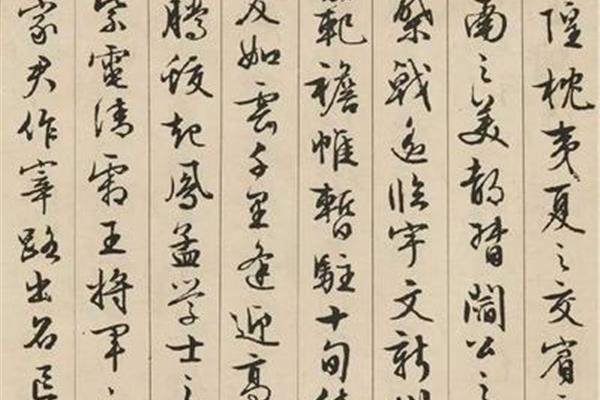 隍枕夷夏之交賓
南之美都督閻公之
棨戟遙臨宇文新州
範襜帷暫駐十旬休
友如雲千里逢迎高
騰蛟起鳳孟学士之
紫電清霜王將軍之
家君作宰路出名區